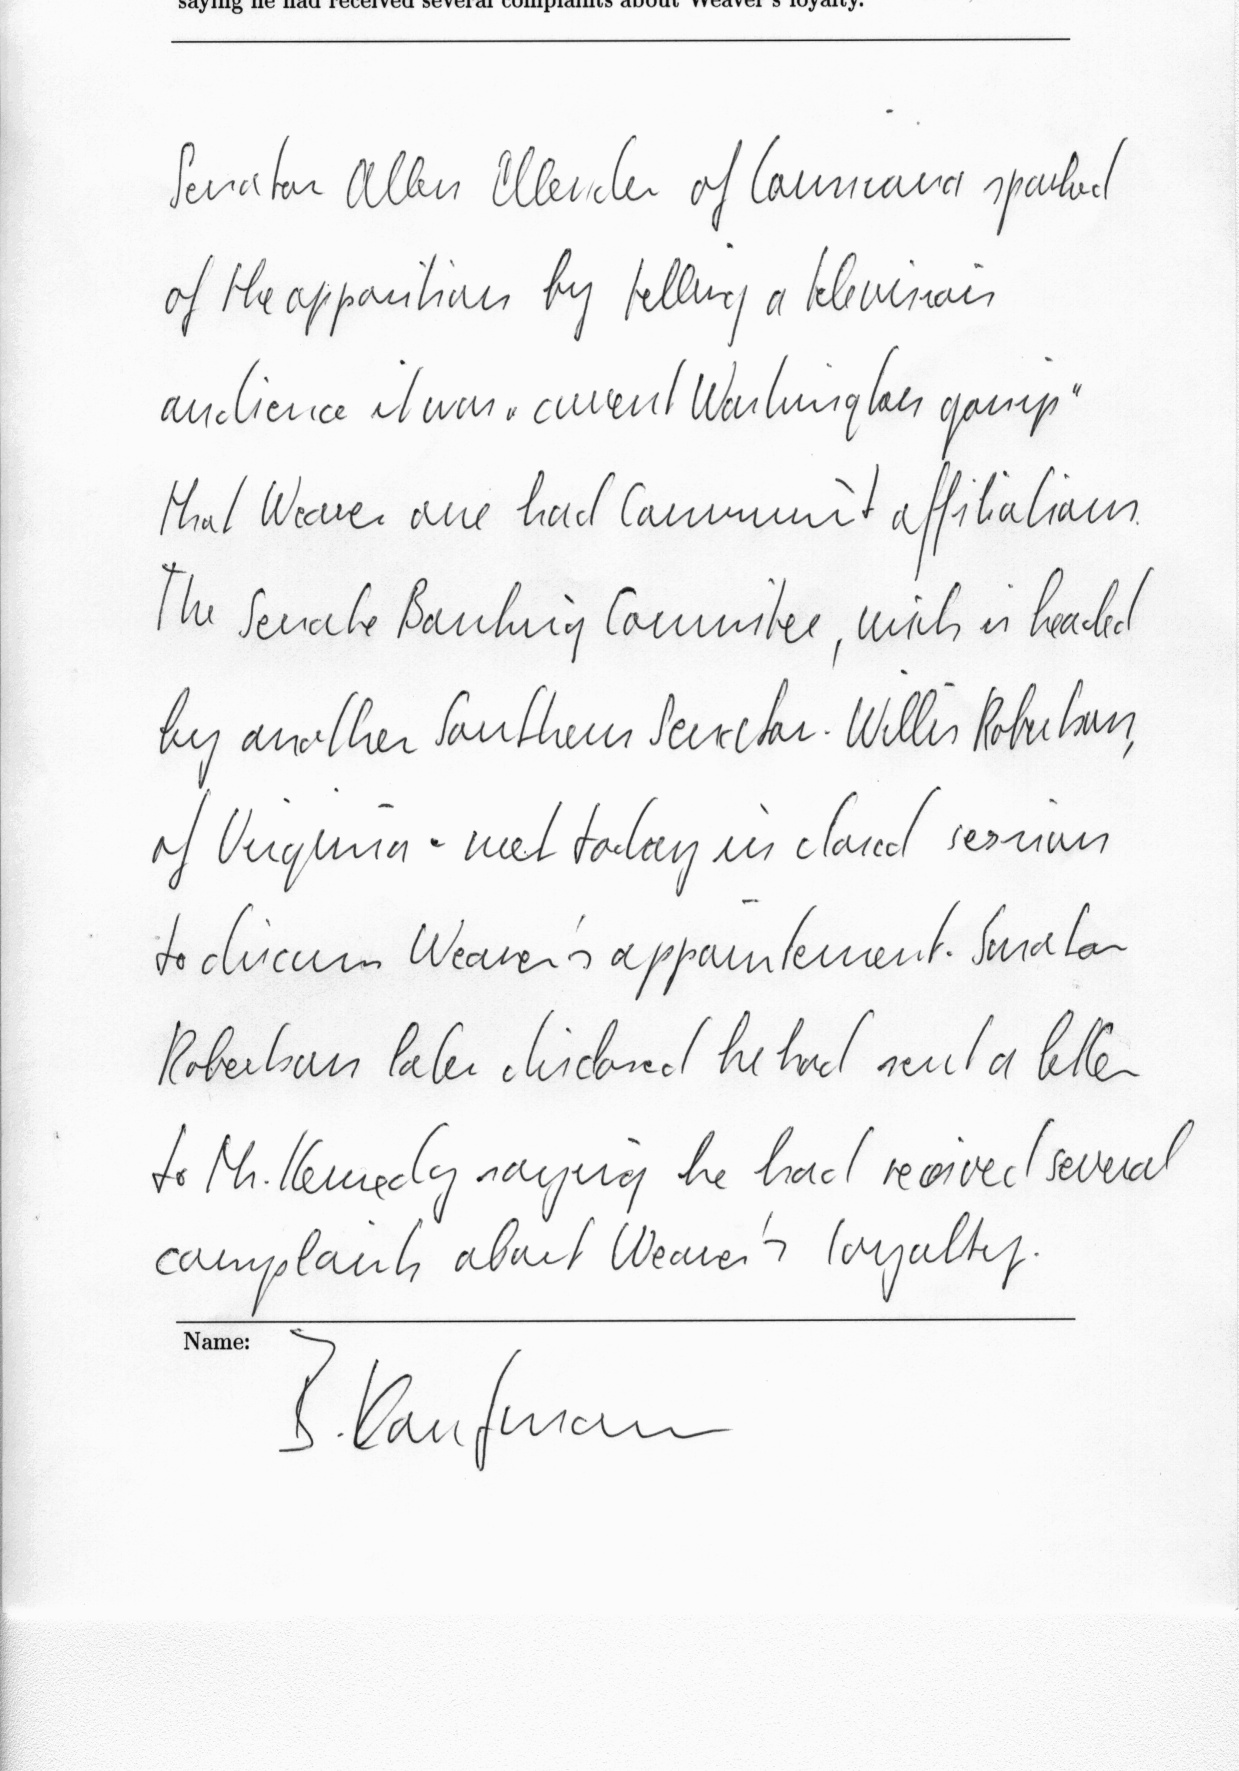 saying he had received several complaints about Weaver's loyalty.
Senator Allen Ellender of Louisiana sparked
of the opposition by telling a television
audience it was "current Washington gossip"
that Weaver one had Communist affiliations.
The Senate Banking Committee, wich is headed
by another Southern Senator - Willis Robertson,
of Virginia - met today in closed session
to discuss Weaver's appointement. Senator
Robertson later disclosed he had sent a letter
to Mr. Kennedy saying he had received several
complaints about Weaver's loyalty.
Name:
B. Kaufmann